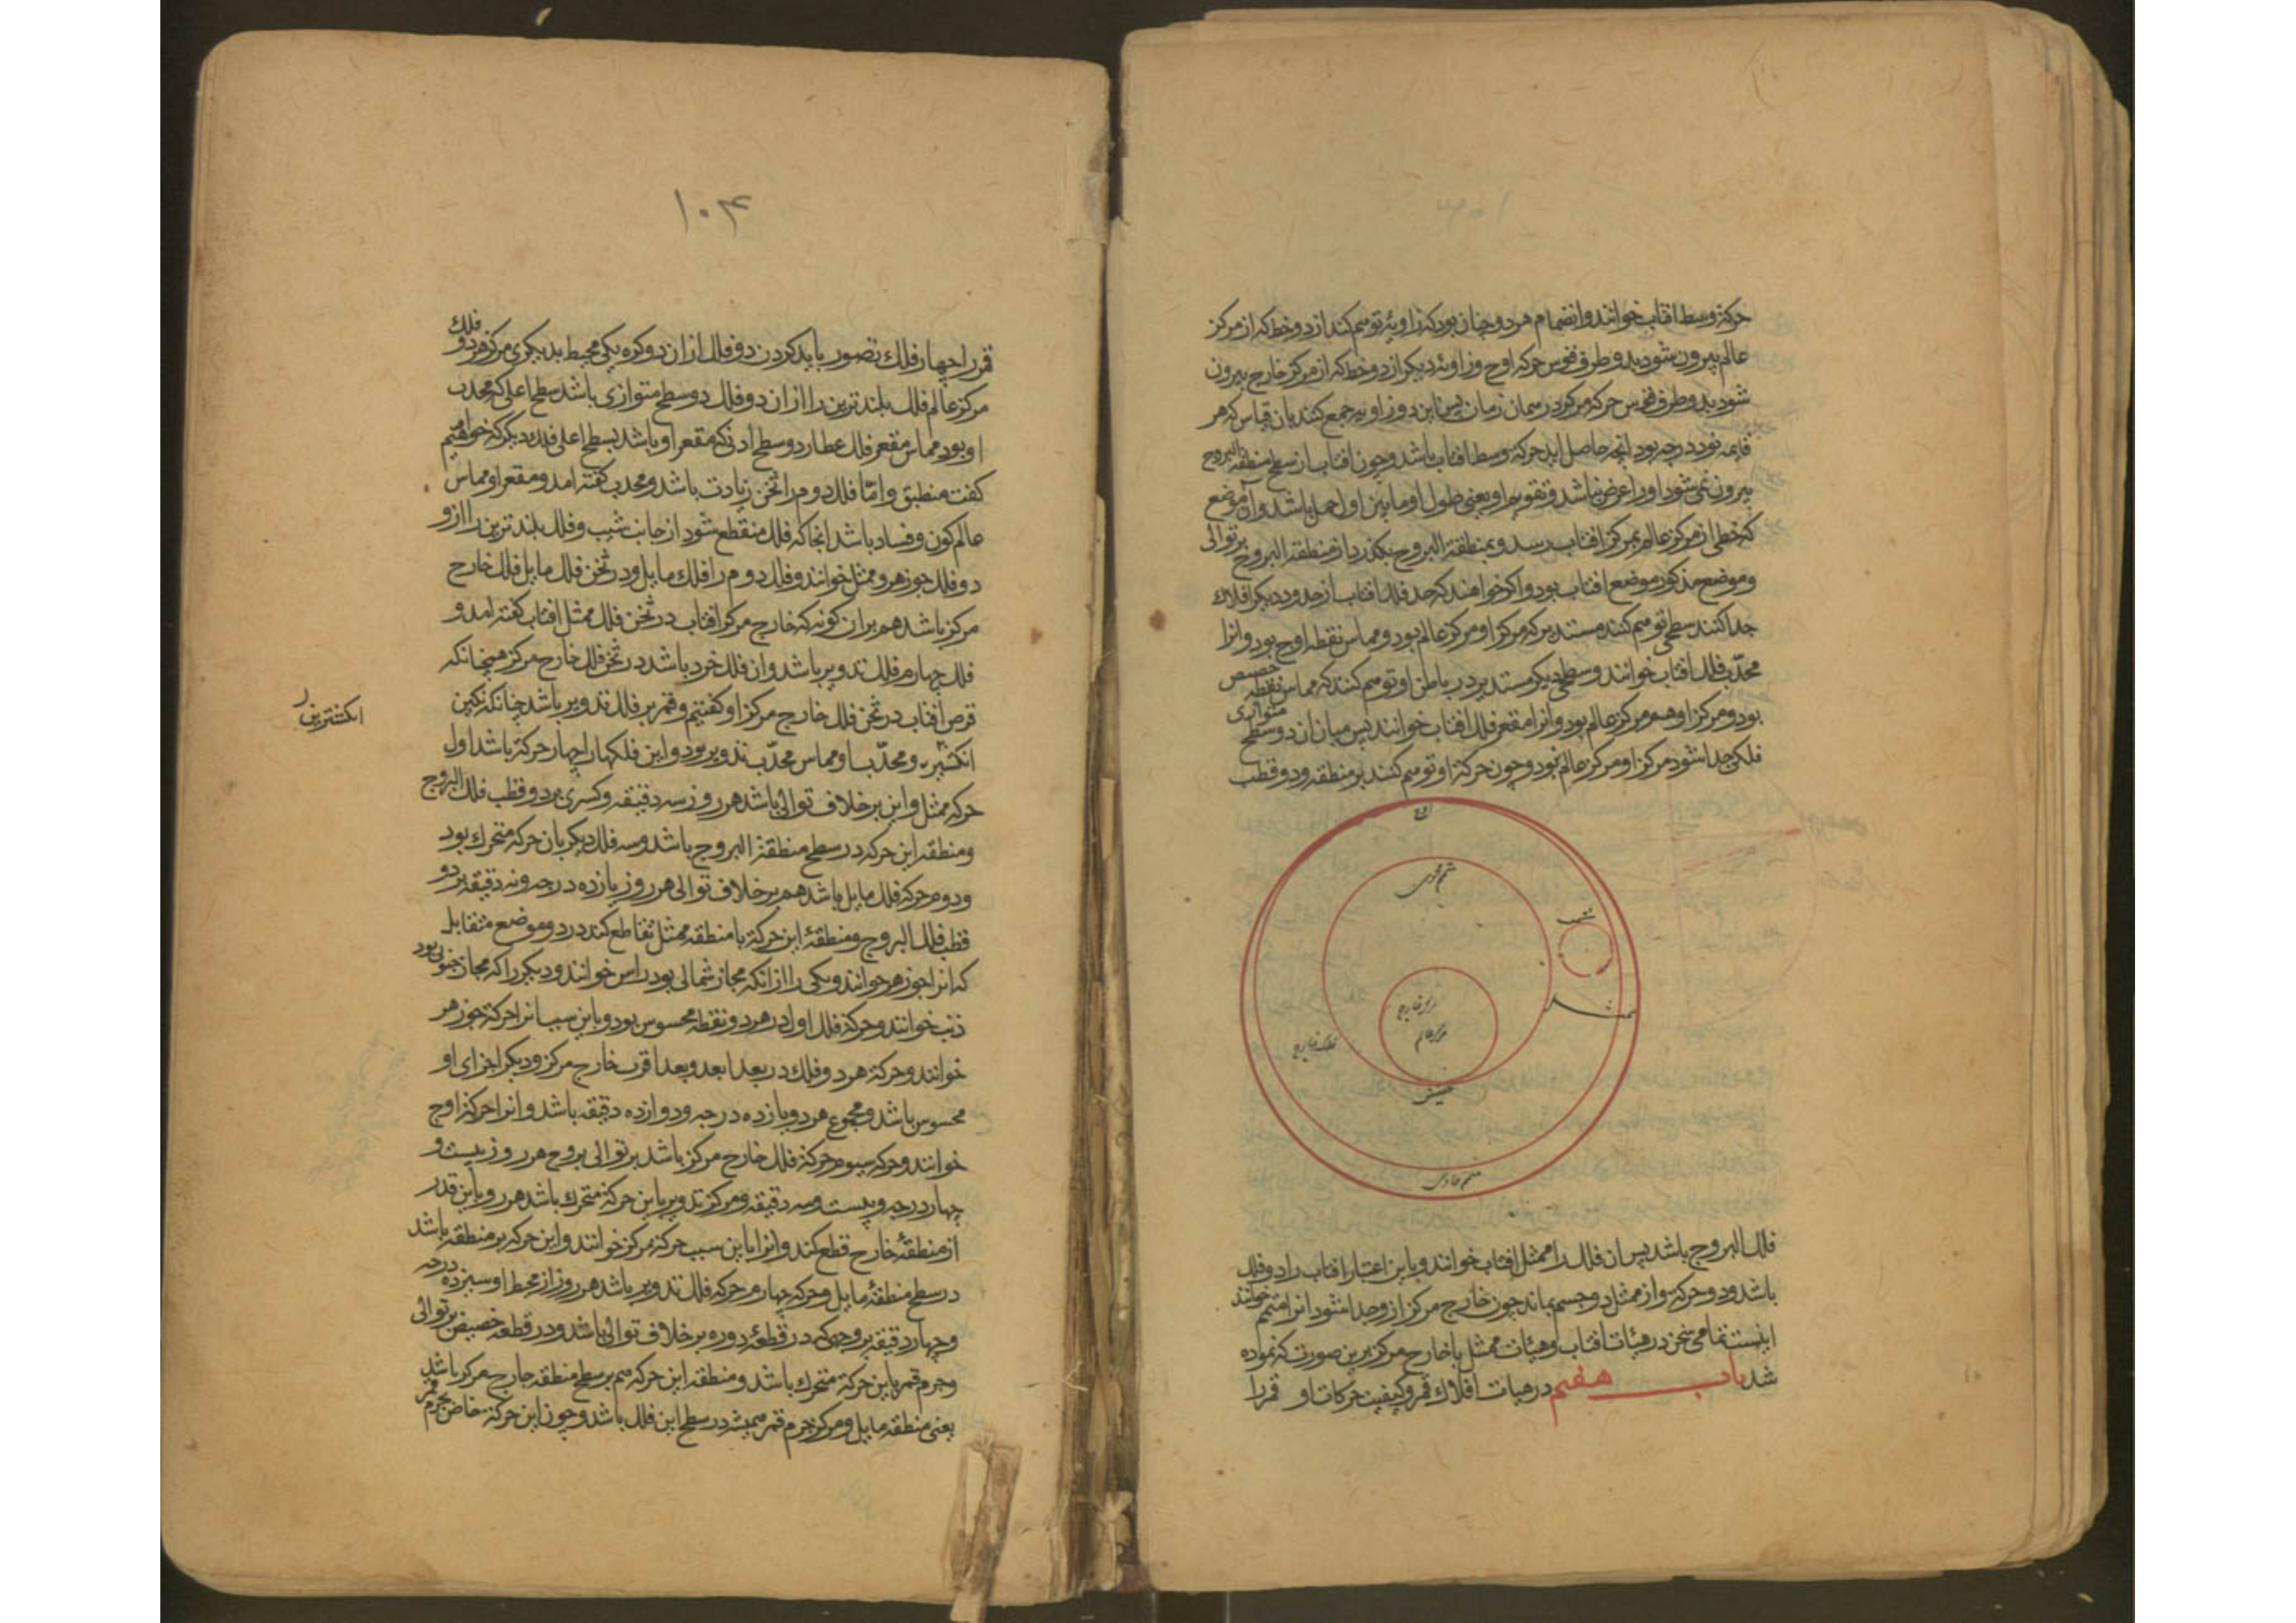 حرکة وسط افتاب خوانند و انضمام هر دو چنان بود که زاویهٔ توهم کنند از دو خط که از مرکز
عالم بیرون شود بدو طرف قوس حرکه اوج و زاویهٔ دیکر از دو خط که از مرکز خارج بیرون
شود بدو طرف قوس حرکه مرکز در همان زمان پس این دو زاویه جمع کنند بان قیاس که هر
قایمه نود درجه بود انچه حاصل اید حرکه وسط افتاب باشد و چون افتاب از سطح منطقة البروج
بیرون نمی شود او را عرض نباشد و تقویم او یعنی طول او ما بین اول حمل باشد و آن موضع
که خطی از مرکز عالم بمرکز افتاب رسد و بمنطقة البروج بکذرد از منطقة البروج بر توالی
و موضع مذکور موضع افتاب بود و اکر خواهند که حد فلک افتاب از حدود دیکر افلاک
جدا کنند سطحی توهم کنند مستدیر که مرکز او مرکز عالم بود و مماس نقطه اوج بود و انرا
محدّب فلک افتاب خوانند و سطحی دیکر مستدیر در باطن او توهم کنند که مماس نقطه حضیض
بود و مرکز او هم مرکز عالم بود و انرا مقعر فلک افتاب خوانند پس میان ان دو سطح متوازی
فلکی جدا شود مرکز او مرکز عالم بود و چون حرکة او توهم کنند بر منطقه و دو قطب
اوج
متمم محوی
شمس
ممثل
مرکز خارج
مرکز عالم
فلک خارج
حضیض
متمم حاوی
فلک البروج باشد پس ان فلک را ممثل افتاب خوانند و باین اعتبار افتاب را دو فلک
باشد و دو حرکه سوا از ممثل دو جسم بماند چون خارج مرکز ازو جدا شود انرا متمم خوانند
اینست تمامی سخن در هیأت افتاب و هیأت ممثل با خارج مرکز برین صورت که نموده
شد باب هفتم در هیات افلاک قمر و کیفیت حرکات او قمر را
۱۰۴
قمر را چهار فلک تصور باید کردن دو فلک ازان دو کره یکی محیط بدیکری مرکز هر دو فلک
مرکز عالم فلک بلندترین را ازان دو فلک دو سطح متوازی باشد سطح اعلی که محدب
او بود مماس مقعر فلک عطارد و سطح ادنی که مقعر او باشد بسطح اعلی فلک دیکر که خواهیم
کفت منطبق و امّا فلک دوم را ثخن زیادت باشد و محدب کفته امد و مقعر او مماس
عالم کون و فساد باشد انجا که فلک منقطع شود از جانب شیب و فلک بلندترین را ازو
دو فلک جوزهر و ممثل خوانند و فلک دوم را فلک مایل و در ثخن فلک مایل فلک خارج
مرکز باشد هم بران کونه که خارج مرکز افتاب در ثخن فلک ممثل افتاب کفته امد و
فلک چهارم فلک تدویر باشد و ان فلک خرد باشد در ثخن فلک خارج مرکز همچنانکه
قرص افتاب در ثخن فلک خارج مرکز او کفتیم و قمر بر فلک تدویر باشد چنانکه نکین
انکشتر و محدّب او مماس محدّب تدویر بود و این فلکها را چهار حرکة باشد اول
انکشترین
حرکه ممثل و این بر خلاف توالی باشد هر روز سه دقیقه و کسری بر دو قطب فلک البروج
و منطقه این حرکه در سطح منطقة البروج باشد و سه فلک دیکر بان حرکه متحرک بود
و دوم حرکه فلک مایل باشد هم بر خلاف توالی هر روز یازده درجه و نه دقیقه بر دو
قطب فلک البروج و منطقهٔ این حرکة با منطقه ممثل تقاطع کند در دو موضع متقابل
که انرا جوزهر خوانند و یکی را ازانکه مجاز شمالی بود راس خوانند و دیکر را که مجاز جنوبی بود
ذنب خوانند و حرکة فلک اول در هر دو نقطه محسوس بود و باین سبب انرا حرکة جوزهر
خوانند و حرکة هر دو فلک در بعد ابعد و بعد اقرب خارج مرکز و دیکر اجزای او
محسوس باشد و مجموع هر دو یازده درجه و دوازده دقیقه باشد و انرا حرکة اوج
خوانند و حرکه سیوم حرکة فلک خارج مرکز باشد بر توالی بروج هر روز بیست و
چهار درجه و بیست و سه دقیقه و مرکز تدویر باین حرکة متحرک باشد هر روز باین قدر
از منطقهٔ خارج قطع کند و انرا باین سبب حرکة مرکز خوانند و این حرکه بر منطقه باشد
در سطح منطقهٔ مایل و حرکه چهارم حرکه فلک تدویر باشد هر روز از محیط او سیزده درجه
و چهار دقیقه بر وجهی که در قطعهٔ دوره بر خلاف توالی باشد و در قطعه حضیض بر توالی
و جرم قمر باین حرکة متحرک باشد و منطقه این حرکه هم بر سطح منطقه خارج مرکز باشد
یعنی منطقه مایل و مرکز جرم قمر همیشه در سطح این فلک باشد و چون این حرکة خاص بجرم قمر